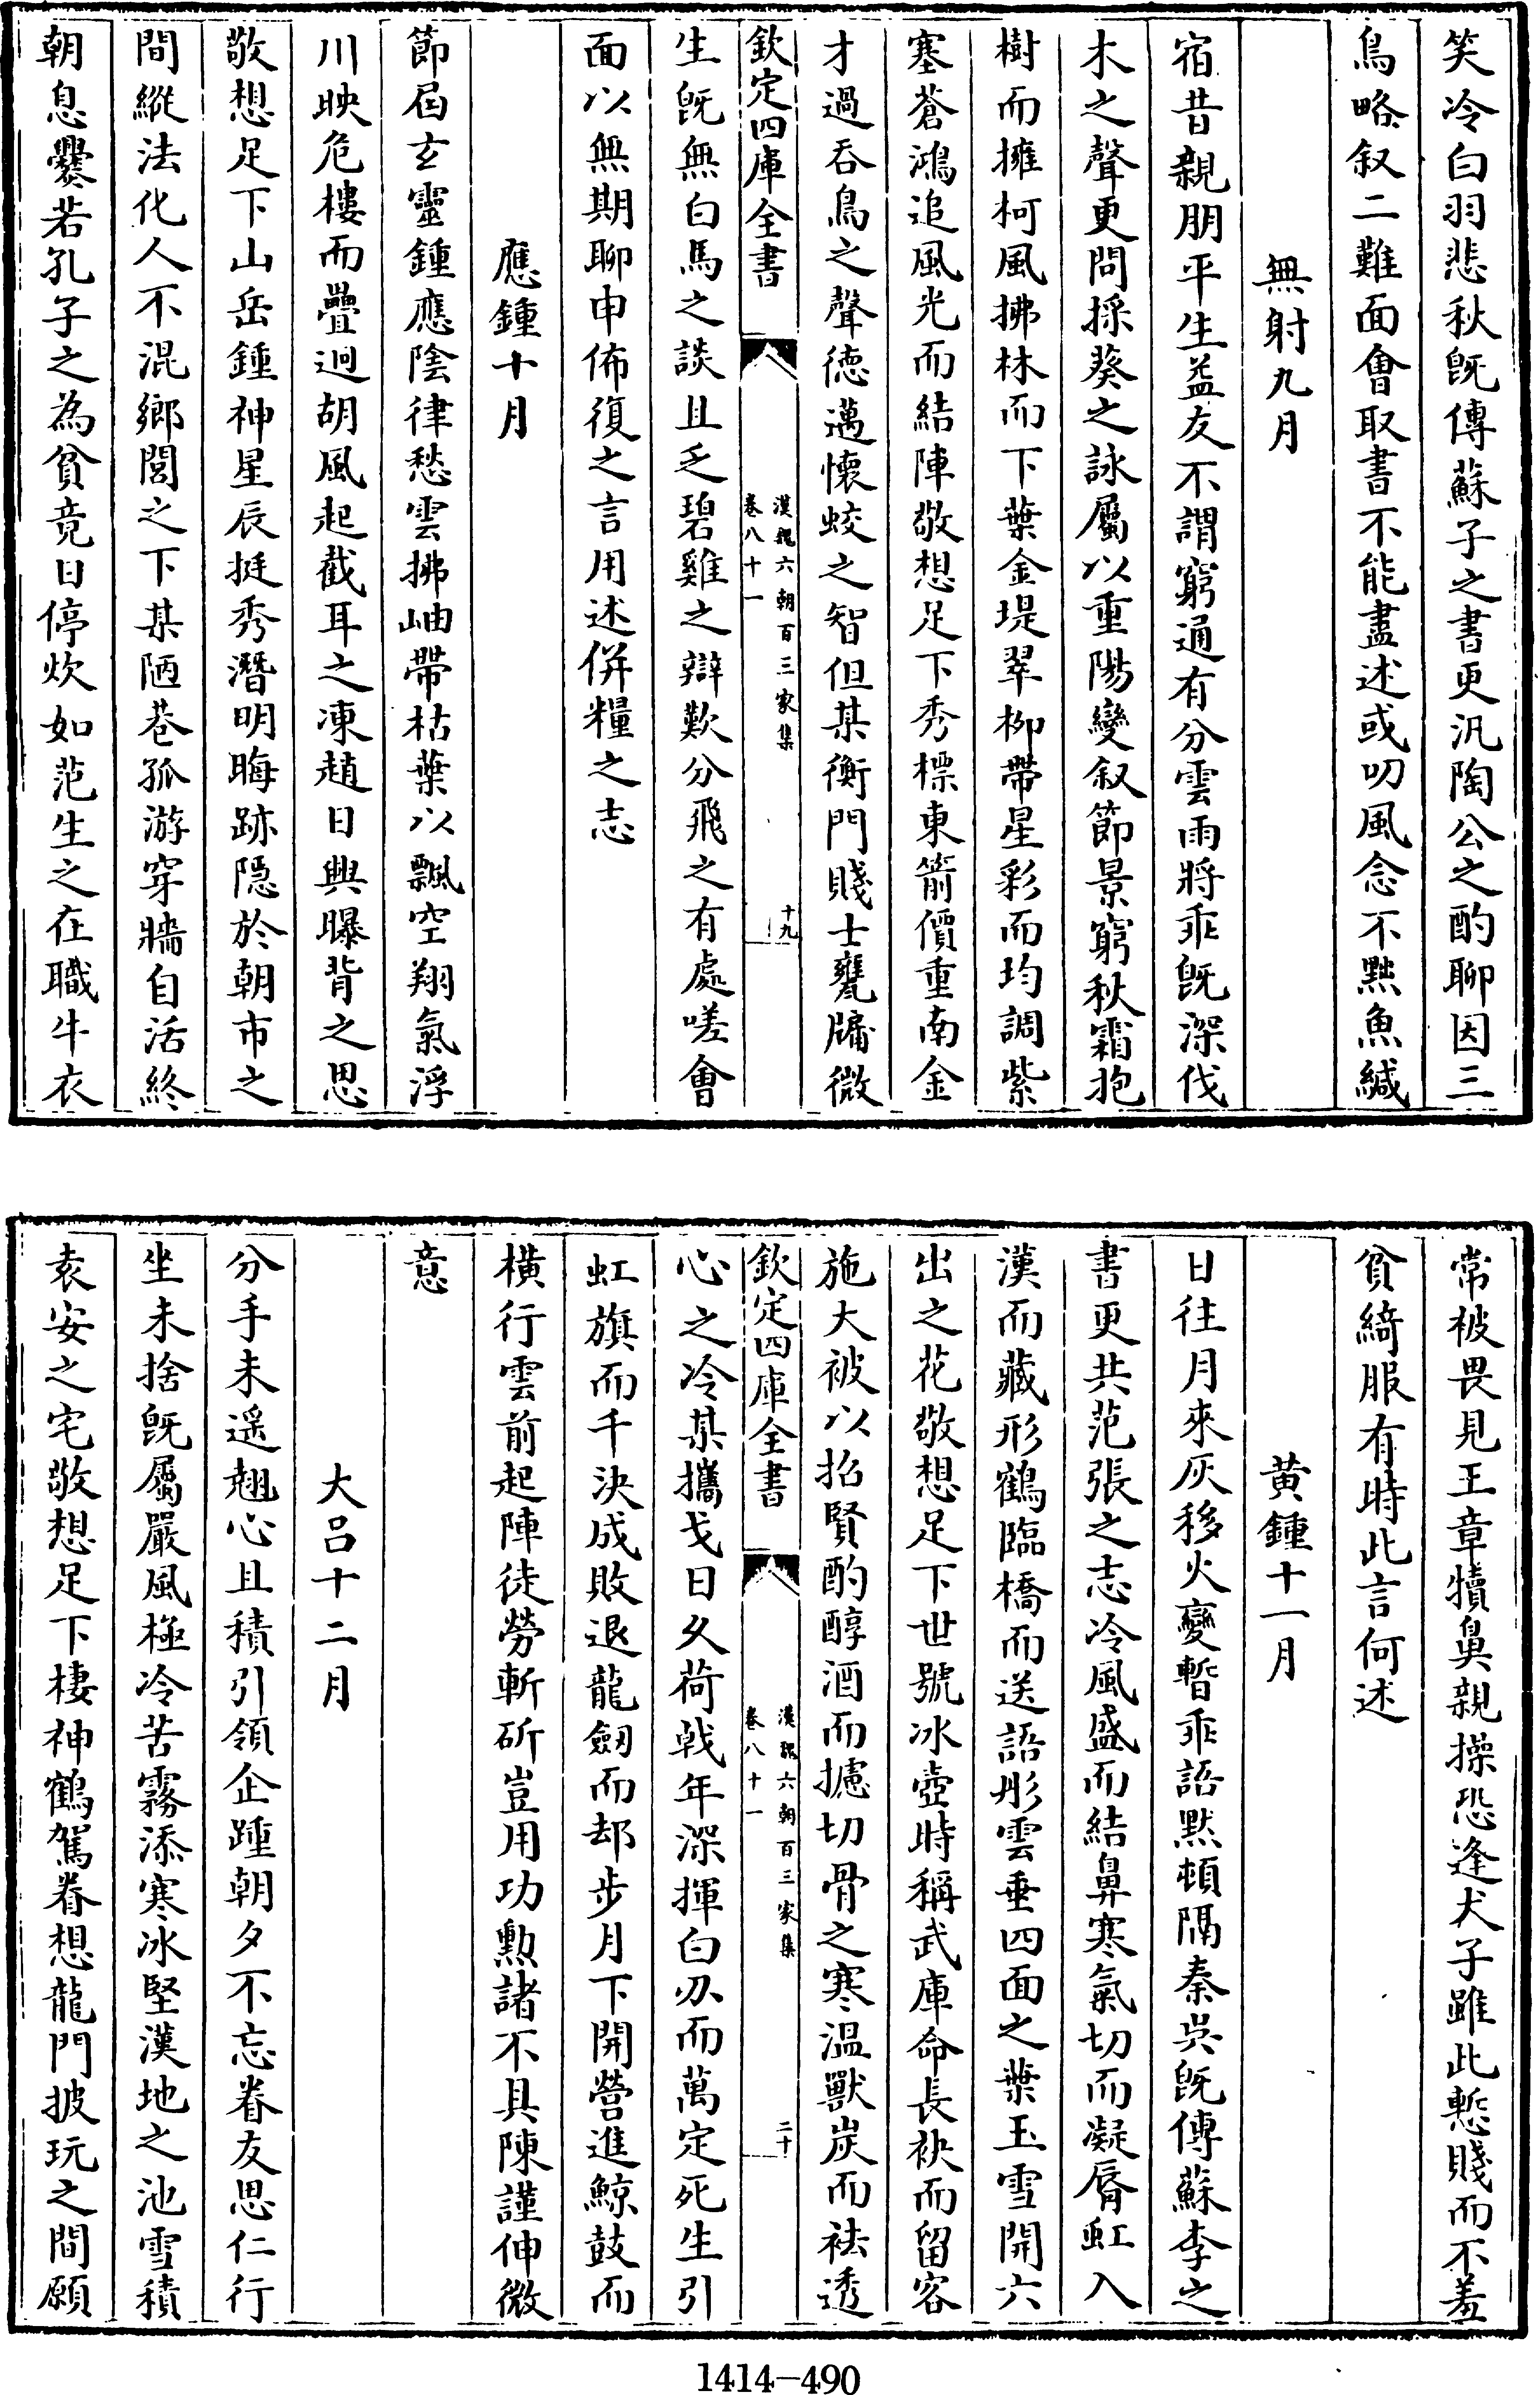 笑冷白羽悲秋既傳蘇子之書更汎陶公之酌聊因三
鳥略叙二難面會取書不能盡述或叨風念不黙魚緘
無射九月
宿昔親朋平生益友不謂窮通有分雲雨將乖既深伐
木之聲更問採葵之詠屬以重陽變叙節景窮秋霜抱
樹而擁柯風拂林而下葉金堤翠柳帶星彩而均調紫
塞蒼鴻追風光而結陣敬想足下秀標東箭價重南金
才過吞鳥之聲徳邁懷蛟之智但某衡門賤士甕牖微
欽定四庫全書
漢魏六朝百三家集
卷八十一
十九
生既無白馬之談且乏碧雞之辯歎分飛之有處嗟會
面以無期聊申佈復之言用述併糧之志
應鍾十月
節屆玄靈鍾應陰律愁雲拂岫帶枯葉以飄空翔氣浮
川映危樓而疊迥胡風起截耳之凍趙日興曝背之思
敬想足下山岳鍾神星辰挺秀潛明晦跡隠於朝市之
間縱法化人不混鄉閭之下某陋巷孤游穿牆自活終
朝息爨若孔子之為貧竟日停炊如范生之在職牛衣
常被畏見王章犢鼻親操恐逢犬子雖此慙賤而不羞
貧綺服有時此言何述
黄鍾十一月
日往月來灰移火變暫乖語黙頓隔秦吳既傳蘇李之
書更共范張之志冷風盛而結鼻寒氣切而凝脣虹入
漢而藏形鶴臨橋而送語彤雲垂四面之葉玉雪開六
出之花敬想足下世號冰壺時稱武庫命長袂而留客
施大被以招賢酌醇酒而據切骨之寒温獸炭而袪透
欽定四庫全書
漢魏六朝百三家集
卷八十一
二十
心之冷某攜戈日久荷戟年深揮白刃而萬定死生引
虹旗而千決成敗退龍劔而却步月下開營進鯨鼓而
橫行雲前起陣徒勞斬斫豈用功勲諸不具陳謹伸微
意
大呂十二月
分手未遥翹心且積引領企踵朝夕不忘眷友思仁行
坐未捨既屬嚴風極冷苦霧添寒冰堅漢地之池雪積
袁安之宅敬想足下棲神鶴駕眷想龍門披玩之間願
1414-490